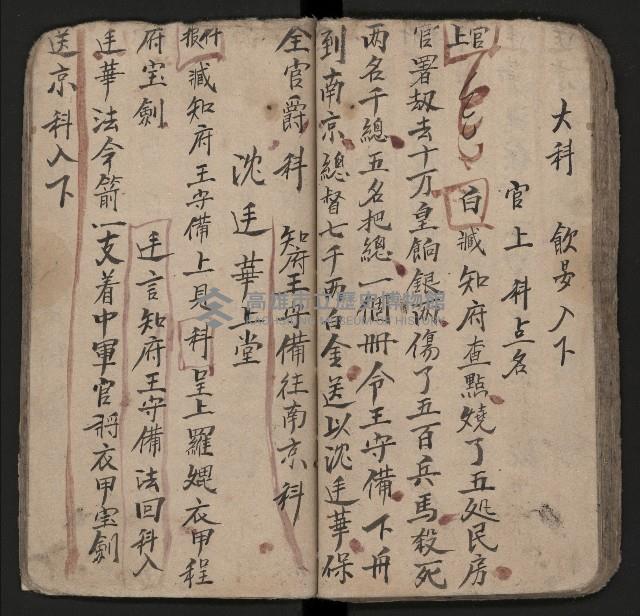 大科 飲晏入下
官上 科点名
官上
白 臧知府查點燒了五処民房
官署刼去十万皇餉銀両傷了五百兵馬殺死
两名千總五名把總一個冊令王守備下冊
到南京總督七千两百金送以沈廷華保
全官爵科 知府王守備往南京科
沈廷華上堂
臧知府王守備上見科呈上羅娓衣甲程
府宝劍 廷言知府王守備法回科入
廷華法令箭一支着中軍官將衣甲宝劍
送京科入下
高雄市立歷史博物館
KAOHSIUNG MUSEUM OF HISTORY